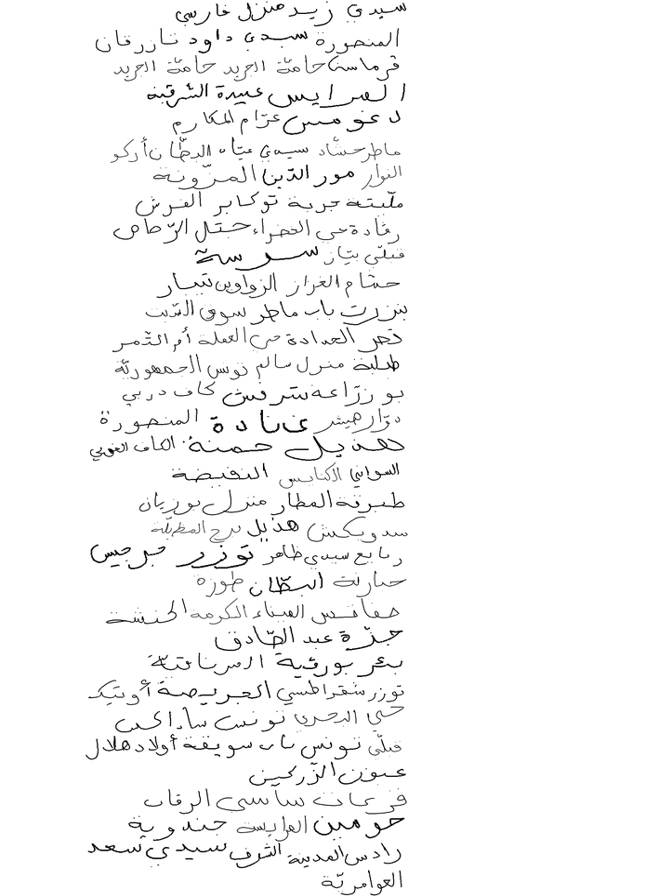 سيدي زيد منزل فارسي
المنصورة سيدي داود تازرقان
قرماسة حامّة الجريد حامّة الجريد
العرايس عبيدة الشرقية
دغومس عزّام المكارم
ماطر حشّاد سيدي عيّاد البطّان أركو
النوار مور الدّين المزّونة
ملّيتة جربة توكابر الفرش
رقّادة حي الخضراء جبل الرّصاص
قبلّي بيّاز سرسة
حشّام الغراز الزواوين تيبار
بنزرت باب ماطر سوق السّبت
قصر الحدادة حي العملة أم الثّمر
طبلبة منزل سالم تونس الجمهوريّة
بوزرّاعة شرفش كاف دربي
دوّار هيشر عنّادة المنصورة
هذيل حمنة الكاف الغربي
السواني الكنايس النفيضة
طبرقة العطار منزل بوزيان
سدويكش هذيل برج
ربايع سيدي ظاهر توزر جرجيس
حبارنة البطّان طوزة
صفاقس الميناء الكرمة الحنشة
جزّة عبد الصّادق
بئر بورقبة المرناقيّة
توزر شقراطسي العريصة أوتيك
حي البحري تونس
قبلّي تونس باب سويقة أولاد هلال
عيون الزّركين
فريانة ساسي الرقاب
حومين العرايسة جندوبة
رادس المدينة الشرف سيدي سعد
العوامريّة